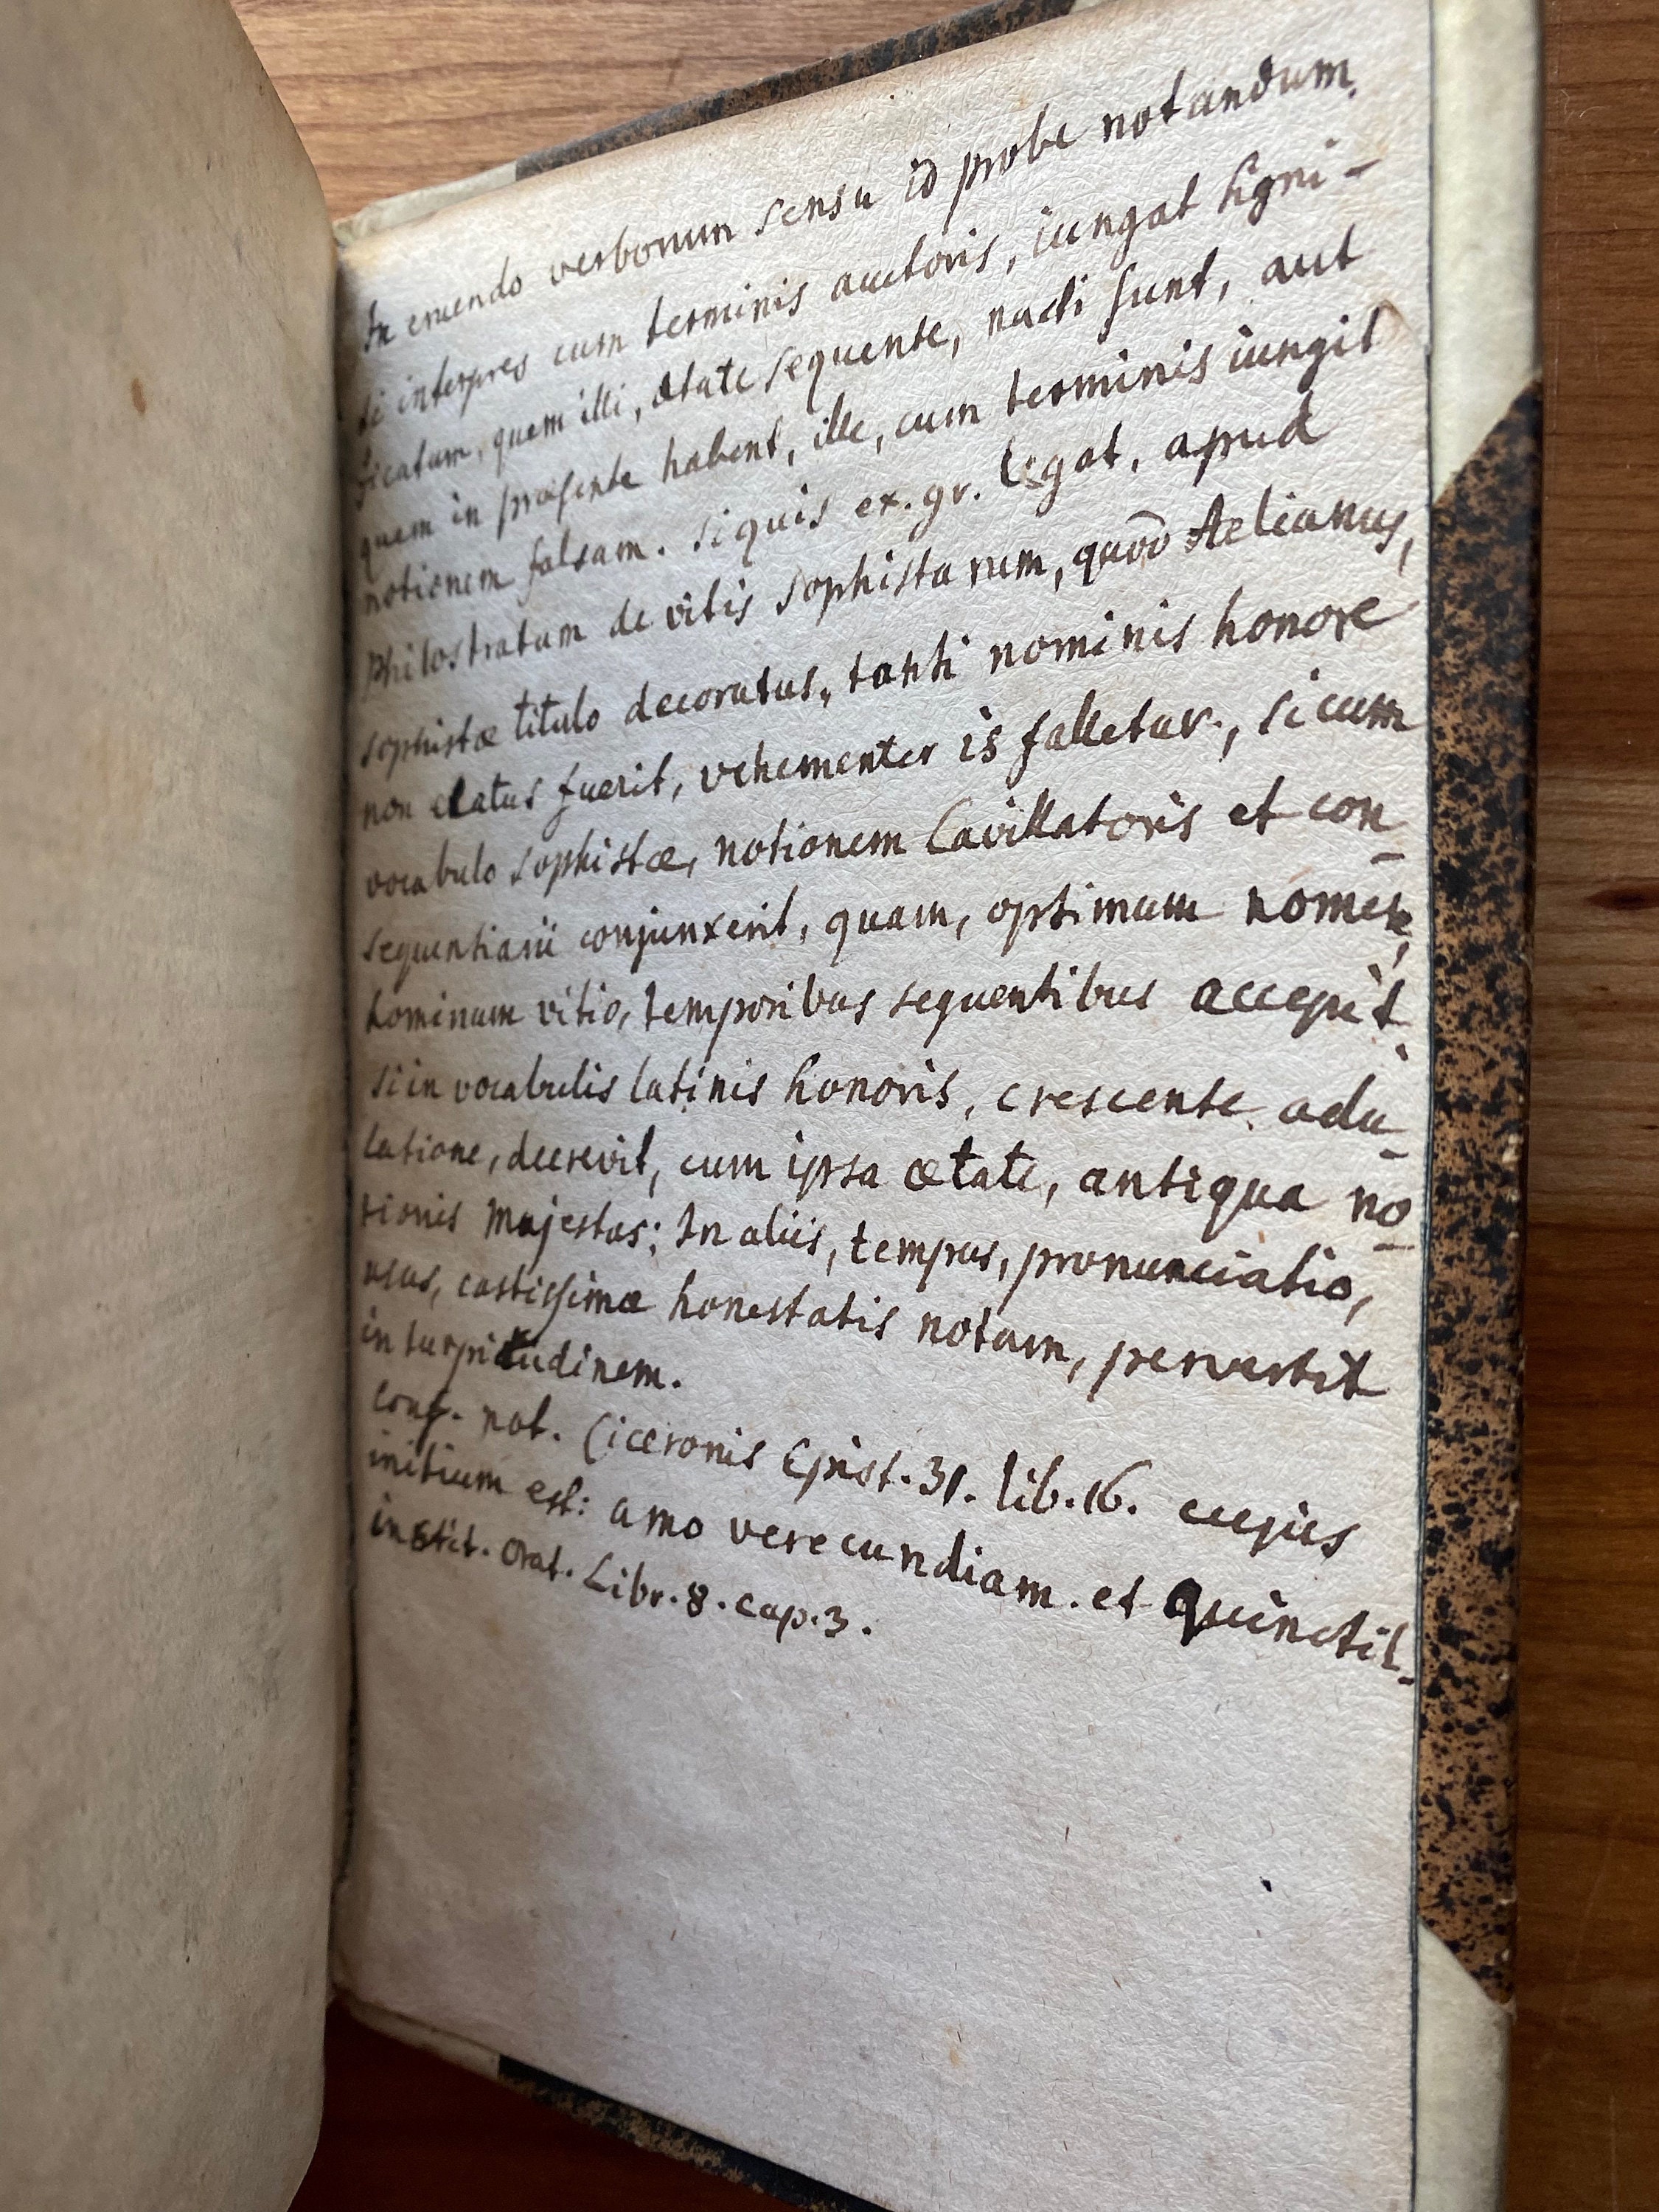 In eruendo verborum sensu id probe notandum.
si interpres cum terminis auctoris, iungat signi-
ficatum, quem illi, ætate sequente, nacti sunt, aut
quem in præsente habent, ille, cum terminis iungit
notionem falsam. si quis ex. gr. legat, apud
Philostratum de vitis sophistarum, quod Aelianus,
sophistæ titulo decoratus, tanti nominis honore
non elatus fuerit, vehementer is falletur, si cum
vocabulo sophistæ, notionem Cavillatoris et con-
sequentiarii conjunxerit, quam, optimum nomen,
hominum vitio, temporibus sequentibus accepit.
si in vocabulis latinis honoris, crescente adu-
latione, decrevit, cum ipsa ætate, antiqua no-
tionis majestas; In aliis, tempus, pronunciatio,
usus, castissimæ honestatis notam, pervertit
in turpitudinem.
conf. not. Ciceronis Epist. 31. lib. 16. cujus
initium est: amo verecundiam. et Quinctil.
instit. Orat. Libr. 8. cap. 3.